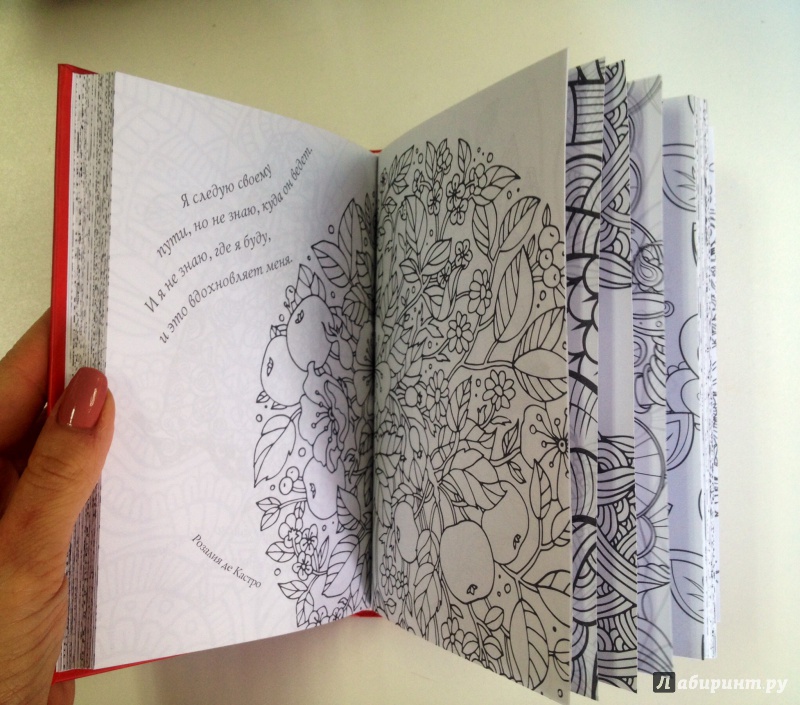 Я следую своему
пути, но не знаю, куда он ведет.
И я не знаю, где я буду,
и это вдохновляет меня.
Розалия де Кастро
Лабиринт.ру